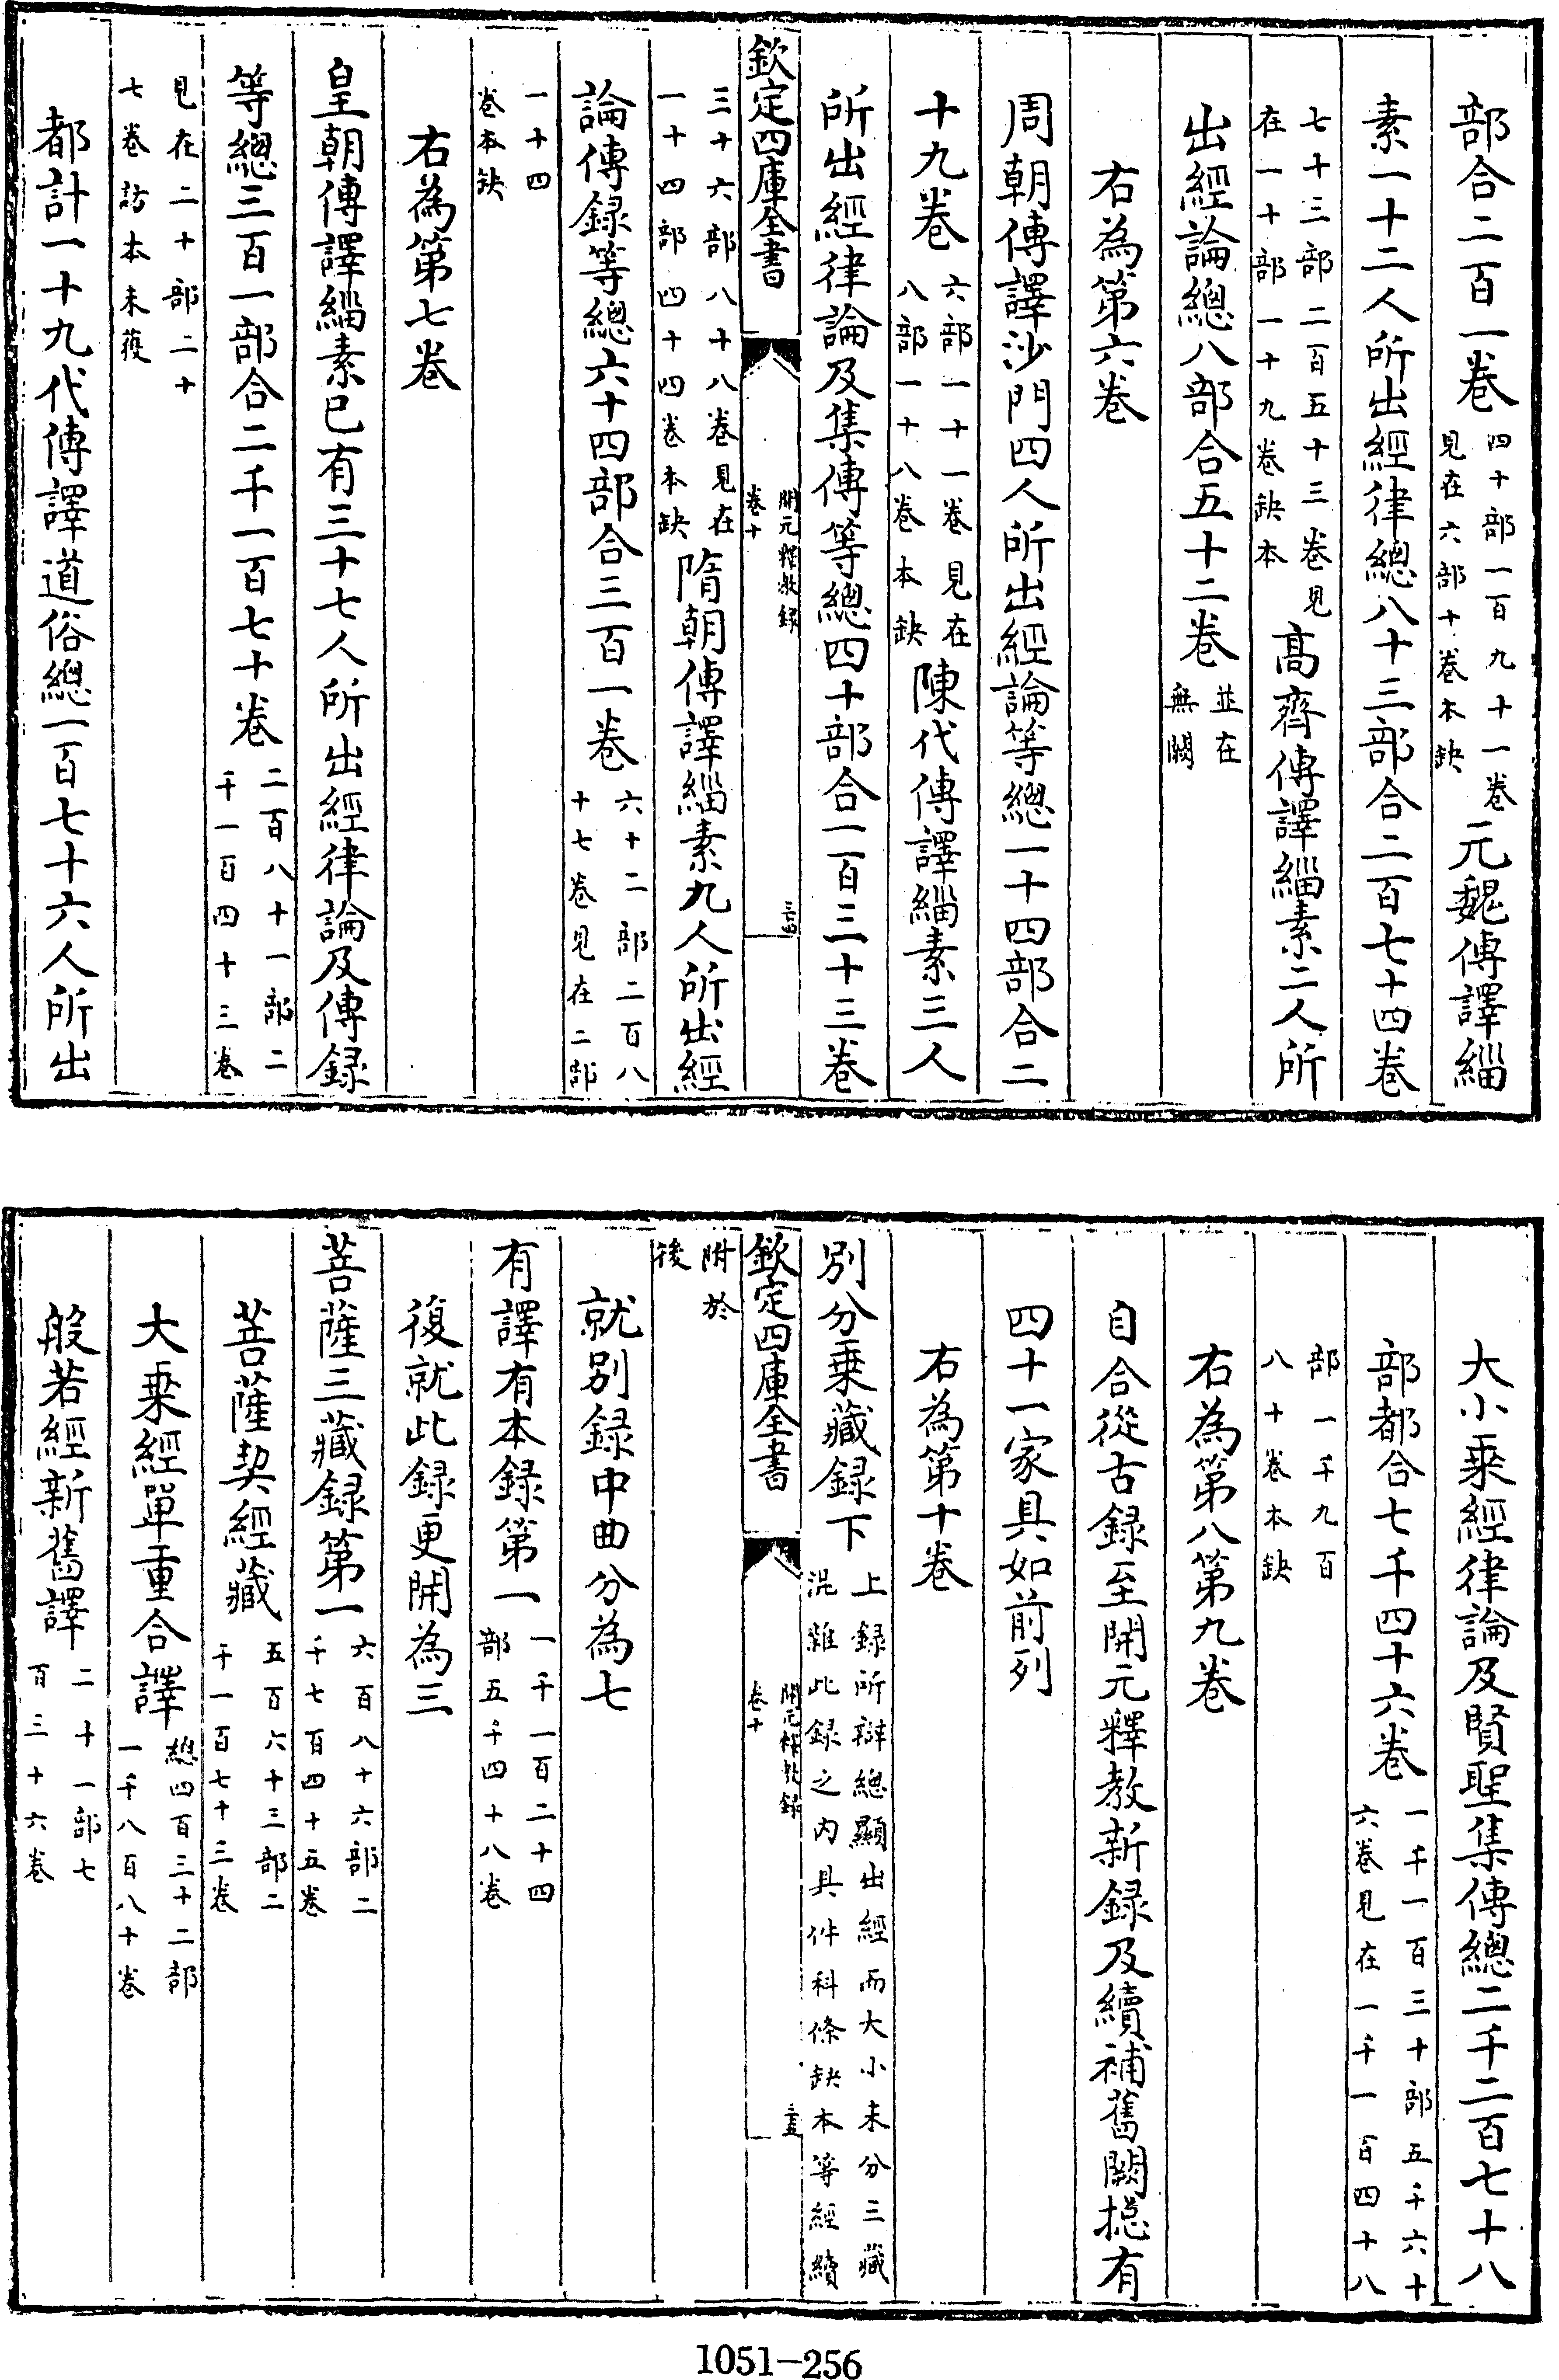 部合二百一卷四十部一百九十一卷見在六部十卷本缺元魏傳譯緇
素一十二人所出經律總八十三部合二百七十四卷
七十三部二百五十三卷見在一十部一十九卷缺本高齊傳譯緇素二人所
出經論總八部合五十二卷並在無闕
右為第六卷
周朝傳譯沙門四人所出經論等總一十四部合二
十九卷六部一十一卷見在八部一十八卷本缺陳代傳譯緇素三人
所出經律論及集傳等總四十部合一百三十三卷
欽定四庫全書 開元釋教録卷十 三西
三十六部八十八卷見在一十四部四十四卷本缺隋朝傳譯緇素九人所出經
論傳録等總六十四部合三百一卷六十二部二百八十七卷見在二部
一十四卷本缺
右為第七卷
皇朝傳譯緇素已有三十七人所出經律論及傳録
等總三百一部合二千一百七十卷二百八十一部二千一百四十三卷
見在二十部二十七卷訪本未獲
都計一十九代傳譯道俗總一百七十六人所出
大小乘經律論及賢聖集傳總二千二百七十八
部都合七千四十六卷一千一百三十部五千六十六卷見在一千一百四十八
部一千九百八十卷本缺
右為第八第九卷
自合從古録至開元釋教新録及續補舊闕摠有
四十一家具如前列
右為第十卷
別分乘藏録下上録所辯總顯出經而大小未分三藏混雜此録之內具件科條缺本等經續
欽定四庫全書 開元釋教録卷十 三五
附於後
就別録中曲分為七
有譯有本録第一一千一百二十四部五千四十八卷
復就此録更開為三
菩薩三藏録第一六百八十六部二千七百四十五卷
菩薩契經藏五百六十三部二千一百七十三卷
大乘經單重合譯總四百三十二部一千八百八十卷
般若經新舊譯二十一部七百三十六卷
1051-256